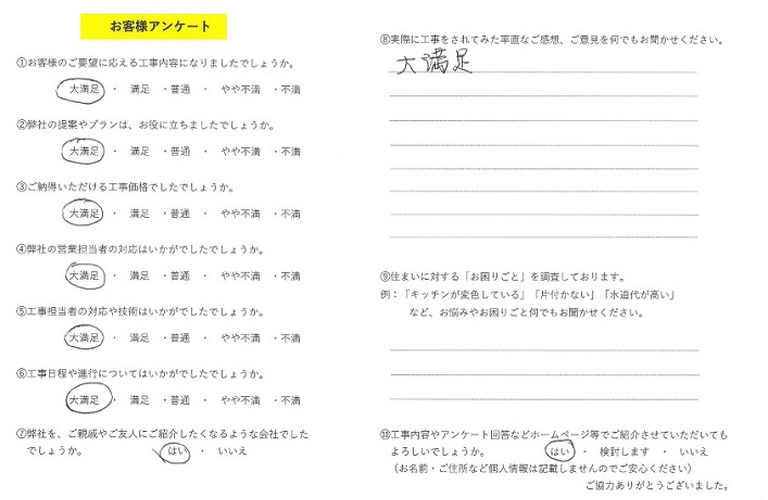 お客様アンケート
①お客様のご要望に応える工事内容になりましたでしょうか。
大満足 ・ 満足 ・普通 ・ やや不満 ・不満
②弊社の提案やプランは、お役に立ちましたでしょうか。
大満足 ・ 満足 ・普通 ・ やや不満 ・不満
③ご納得いただける工事価格でしたでしょうか。
大満足 ・ 満足 ・普通 ・ やや不満 ・不満
④弊社の営業担当者の対応はいかがでしたでしょうか。
大満足 ・ 満足 ・普通 ・ やや不満 ・不満
⑤工事担当者の対応や技術はいかがでしたでしょうか。
大満足 ・ 満足 ・普通 ・ やや不満 ・不満
⑥工事日程や進行についてはいかがでしたでしょうか。
大満足 ・ 満足 ・普通 ・ やや不満 ・不満
⑦弊社を、ご親戚やご友人にご紹介したくなるような会社でした
でしょうか。 はい ・ いいえ
⑧実際に工事をされてみた率直なご感想、ご意見を何でもお聞かせください。
大満足
⑨住まいに対する「お困りごと」を調査しております。
例：「キッチンが変色している」「片付かない」「水道代が高い」
など、お悩みやお困りごと何でもお聞かせください。
⑩工事内容やアンケート回答などホームページ等でご紹介させていただいても
よろしいでしょうか。 はい ・ 検討します ・ いいえ
（お名前・ご住所など個人情報は記載しませんのでご安心ください）
ご協力ありがとうございました。